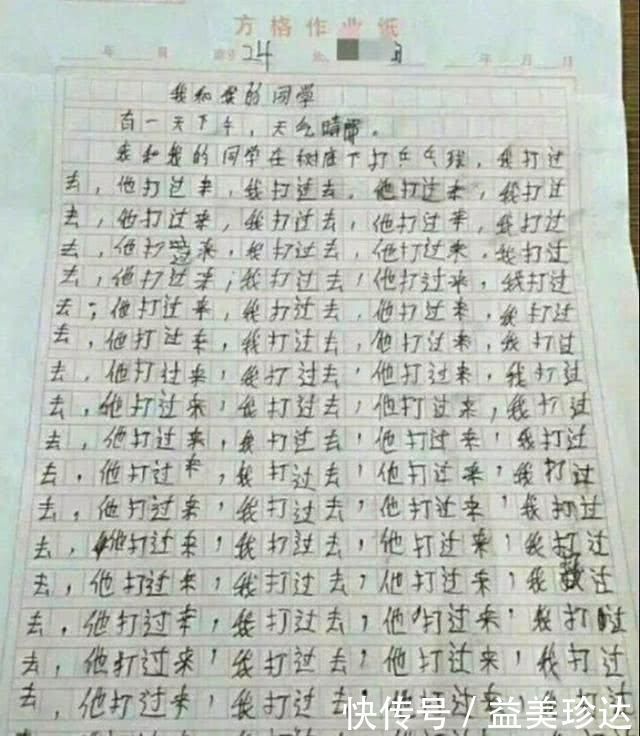 方格作业纸
年 月 24 年 月 日
我和我的同学
有一天下午，天气晴朗。
我和我的同学在树底下打乒乓球，我打过
去，他打过来，我打过去，他打过来，我打过
去，他打过来，我打过去，他打过来，我打过
去，他打过来，我打过去，他打过来，我打过
去，他打过来，我打过去，他打过来，我打过
去，他打过来，我打过去，他打过来，我打过
去，他打过来，我打过去，他打过来，我打过
去，他打过来，我打过去，他打过来，我打过
去，他打过来，我打过去，他打过来，我打过
去，他打过来，我打过去，他打过来，我打过
去，他打过来，我打过去，他打过来，我打过
去，他打过来，我打过去，他打过来，我打过
去，他打过来，我打过去，他打过来，我打过
去，他打过来，我打过去，他打过来，我过
去，他打过来，我打过去，他打过来，我打过
去，他打过来，我打过去，他打过来，我打过
去，他打过来，我打过去，他打过来，我打过
快传号／益美珍达